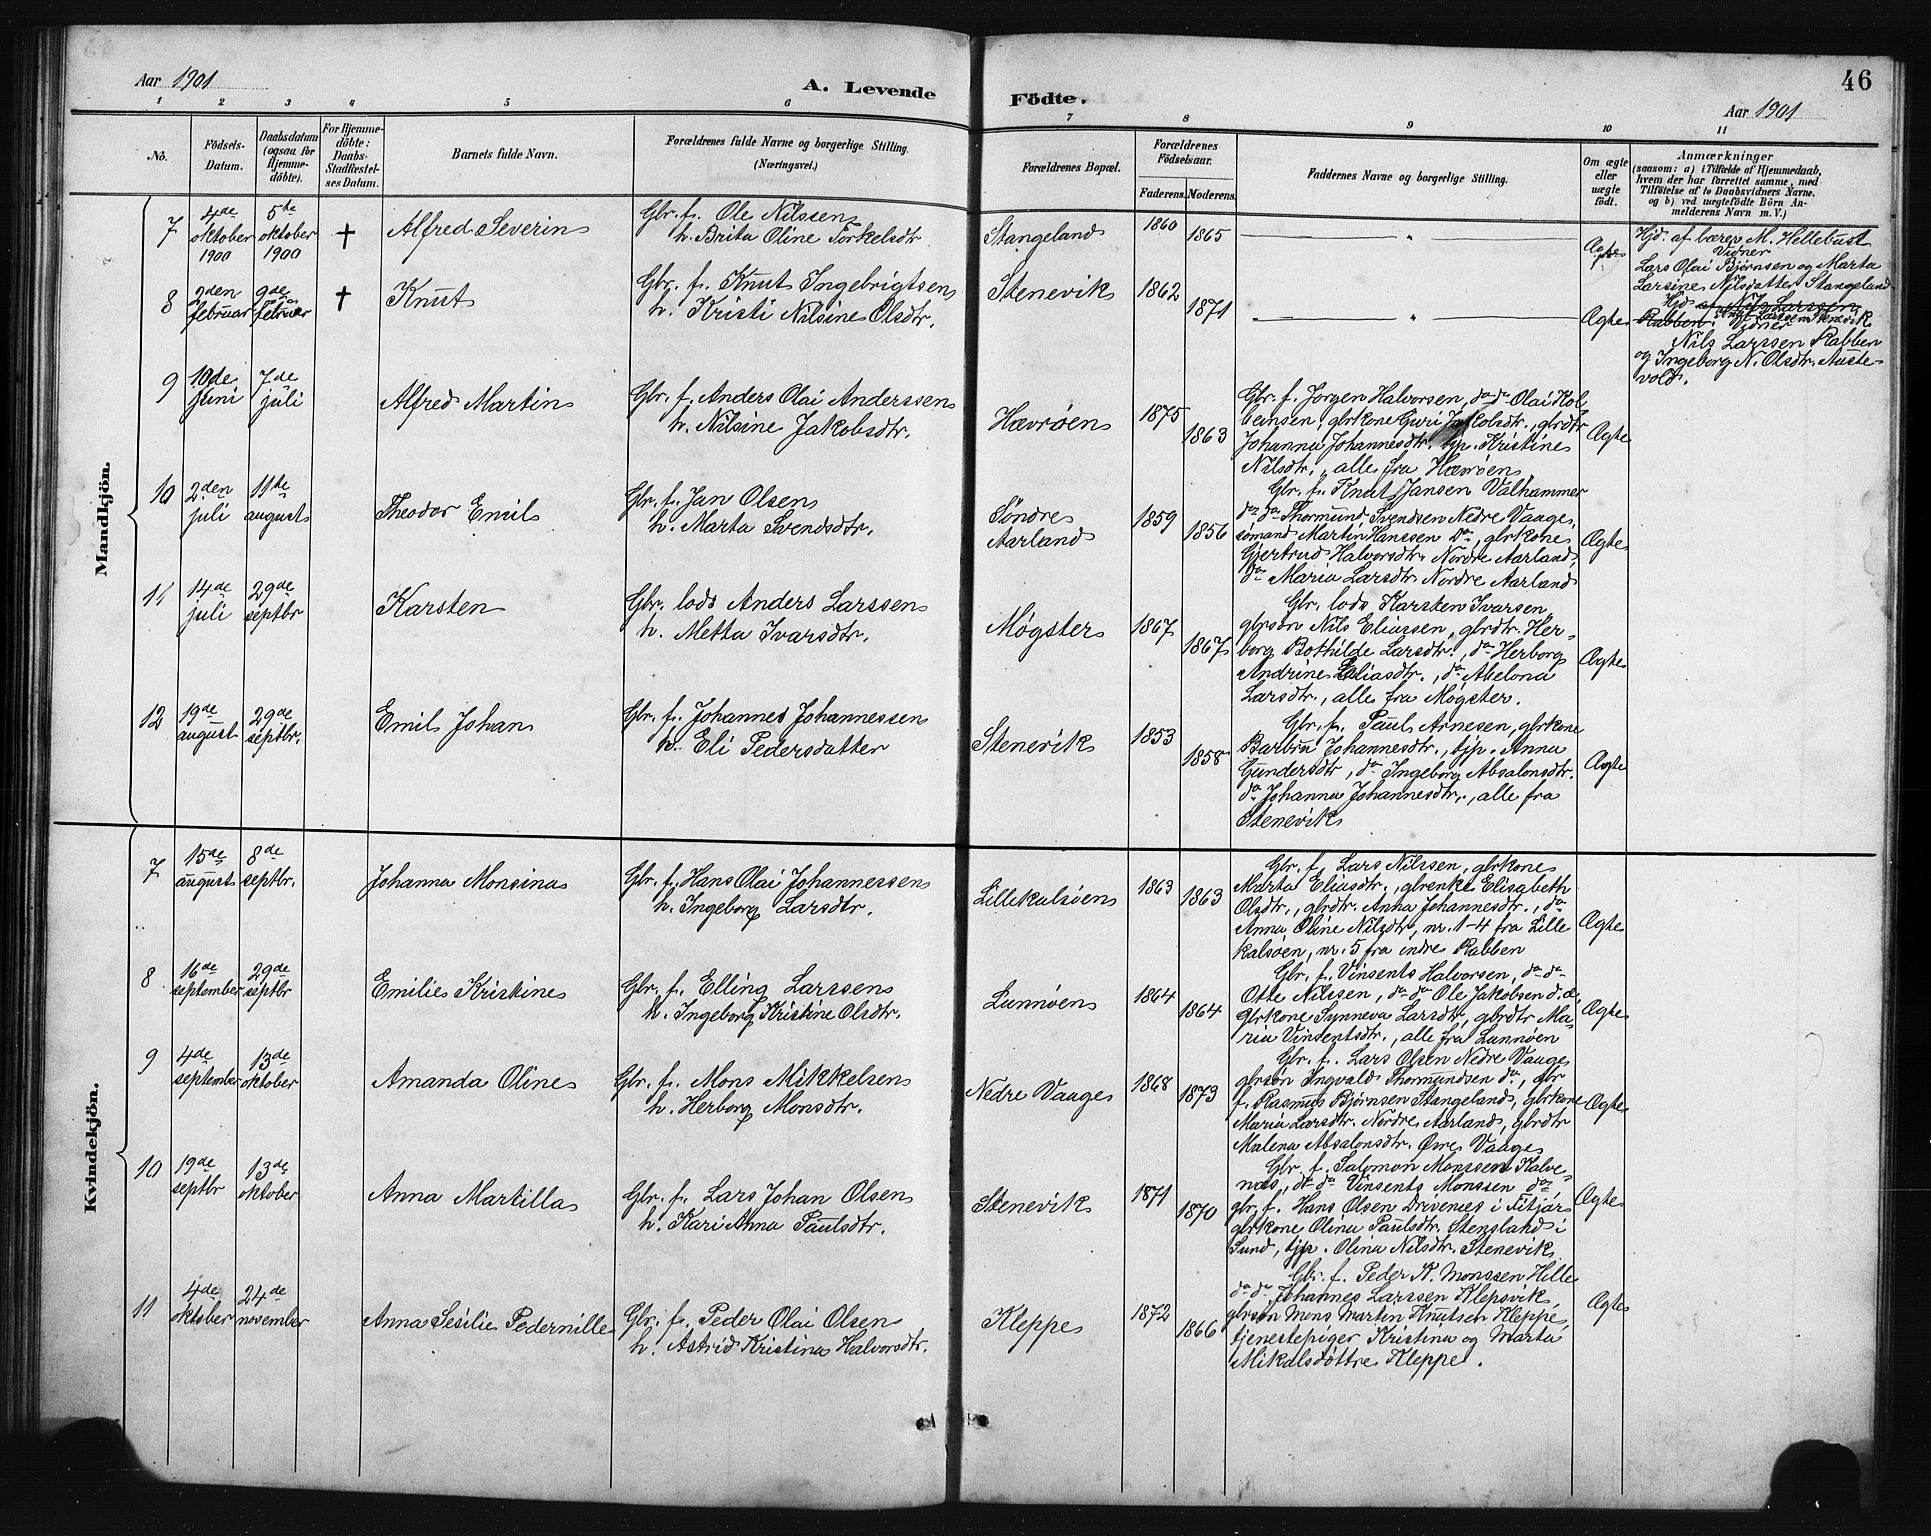 Aar 1901
A. Levende
Födte.
46
Aar 1901
1 2 3 4 5 6 7 8 9 10 11
No.
Födsels-
Datum.
Daabsdatum
(ogsaa for
Hjemme-
döbte).
For Hjemme-
döbte:
Daabs-
Stadfæstel-
ses Datum.
Barnets fulde Navn.
Forældrenes fulde Navne og borgerlige Stilling.
(Næringsvei.)
Forældrenes Bopæl.
Forældrenes
Födselsaar.
Faderens. Moderens.
Faddernes Navne og borgerlige Stilling.
Om ægte
eller
uægte
födt.
Anmærkninger
(saasom: a) i Tilfælde af Hjemmedaab,
hvem der har forrettet samme, med
Tilföielse af to Daabsvidners Navne.
og b) ved uægtefödte Börn An-
melderens Navn m. V.)
Mandkjön.
7
4de
oktober
1900
5te
oktober
1900
†
Alfred Severin
Gbr. f. Ole Nilssen
h. Brita Oline Torkelsdtr
Stangeland
1860
1865
— „ —
Ægte
Hjd. af lærer M. Hellebust
Vidner
Lars Olai Bjørnsen og Marta
Larsine Nilsdatter Stangeland
8
2den
februar
9de
februar
†
Knut
Gbr. f. Knut Ingebrigtsen
h. Kristi Nilsine Olsdtr.
Stenevik
1862
1871
— „ —
Ægte
Hjd. af Nils Larssen
Rabben. Larssen Stenevik
Vidner
Nils Larssen Rabben
og Ingeborg N. Olsdtr. Auste-
vold.
9
10de
juni
7de
juli
Alfred Martin
Gbr. f. Anders Olai Anderssen
h. Nilsine Jakobsdtr.
Hævrøen
1875
1863
Gbr. f. Jørgen Halvorsen, do do Olai Kol-
beinsen, gbrkone Guri Jakobsdtr., gbrdtr
Johanna Johannesdtr. tjp. Kristine
Nilsdtr., alle fra Hævrøen
Ægte
10
2den
juli
11te
august
Theodor Emil
Gbr. f. Jan Olsen
h. Marta Svendsdtr.
Søndre
Aarland
1859
1856
Gbr. f. Knut Jansen Valhammer
do do Thormund Svendsen Nedre Vaage,
sømand Martin Hanssen do, gbrkone
Gjertrud Halvorsdtr. Nordre Aarland,
do Maria Larsdtr Nordre Aarland
Ægte
11
14de
juli
29de
septbr
Karsten
Gbr. lods Anders Larssen
h. Metta Ivarsdtr.
Møgster
1867
1867
Gbr. lods Karsten Ivarsen,
gbrsøn Nils Eliassen, gbrdtr. Her-
borg Bothilde Larsdtr., do Herborg
Andrine Eliasdtr., do Abelona
Larsdtr., alle fra Møgster.
Ægte
12
19de
august
29de
septbr.
Emil Johan
Gbr. f. Johannes Johannessen
h. Eli Pedersdatter
Stenevik
1853
1858
Gbr. f. Paul Arnesen, gbrkone
Barbru Johannesdtr., tjp. Anna
Gundersdtr, do Ingeborg Absalonsdtr.
do Johanna Johannesdtr., alle fra
Stenevik
Ægte
Kvindekjön.
7
15de
august
8de
septbr.
Johanna Monsina
Gbr. f. Hans Olai Johannessen
h. Ingeborg Larsdtr.
Lillekalsøen
1863
1863
Gbr. f. Lars Nilssen, gbrkone
Marta Eliasdtr., gbrenke Elisabeth
Olsdtr., gbrdtr. Anna Johannesdtr., do
Anna Oline Nilsdtr, nr. 1-4 fra Lille
kalsøen, nr. 5 fra indre Rabben
Ægte
8
16de
september
29de
septbr
Emilie Kristine
Gbr. f. Elling Larssen
h. Ingeborg Kristine Olsdtr.
Lunnøen
1864
1864
Gbr. f. Vinsents Halvorsen, do do
Otte Nilssen, do do Ole Jakobsen d. æ,
gbrkone Synneva Larsdtr, gbrdtr Ma-
ria Vinsentsdtr., alle fra Lunnøen
Ægte
9
4de
september
13de
oktober
Amanda Oline
Gbr. f. Mons Mikkelsen
h. Herborg Monsdtr.
Nedre Vaage
1868
1873
Gbr. f. Lars Olsen Nedre Vaage
gbrsøn Ingvald Thormundsen do, gbr
f. Rasmus Bjørnsen Stangeland, gbrkone
Maria Larsdtr. Nordre Aarland, gbrdtr
Malena Absalonsdtr. Øvre Vaage
Ægte
10
19de
septbr
13de
oktober
Anna Martilla
Gbr. f. Lars Johan Olsen
h. Kari Anna Paulsdtr.
Stenevik
1871
1870
Gbr. f. Salomon Monssen Kalve-
næs, do do Vinsents Monssen do
gbr. f. Hans Olsen Drivenes i Fitjar
gbrkone Olina Paulsdtr. Stensland i
Sund, tjp. Olina Nilsdtr. Stenevik
Ægte
11
4de
oktober
24de
november
Anna Sesilie Pedernille
Gbr. f. Peder Olai Olsen
h. Astrid Kristina Halvorsdtr.
Kleppe
1872
1866
Gbr. f. Peder K. Monssen Hille
do do Johannes Larssen Klepsvik,
gbrsøn Mons Martin Knutsen Kleppe,
tjenestepiger Kristina og Marta
Mikalsdøttre Kleppe.
Ægte